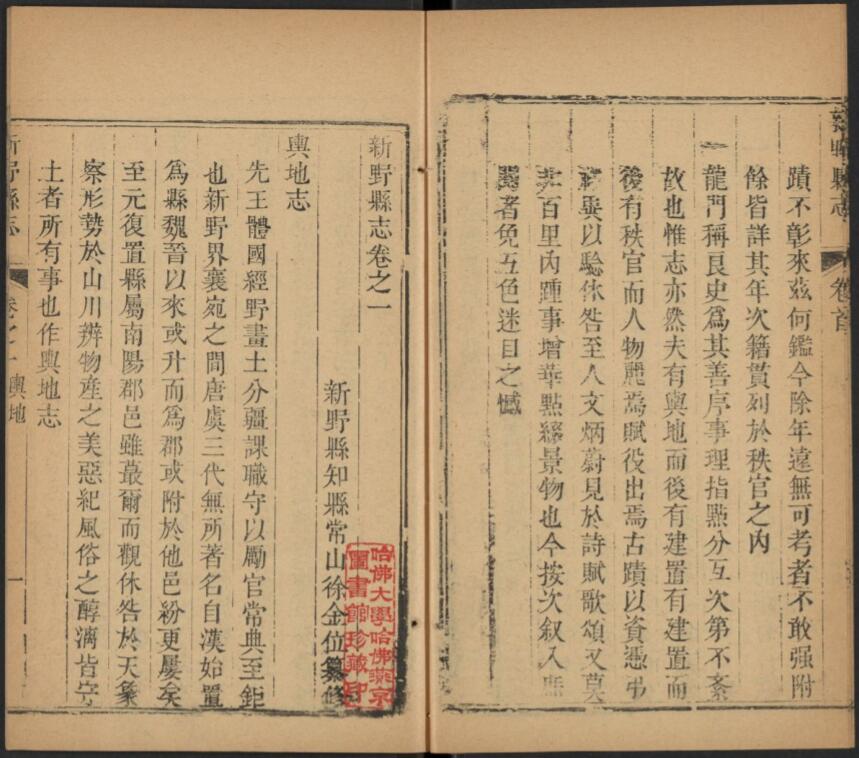 新野縣志
卷首
蹟不彰來茲何鑑今除年遠無可考者不敢强附
餘皆詳其年次籍貫列於秩官之內
一龍門稱良史爲其善序事理指點分互次第不紊
故也惟志亦然夫有輿地而後有建置有建置而
後有秩官而人物麗焉賦役出焉古蹟以資憑弔
異以驗休咎至人文炳蔚見於詩賦歌頌又莫
非百里內踵事增華點綴景物也今按次叙入
覽者免五色迷目之憾
新野縣志卷之一
新野縣知縣常山徐金位纂修
哈佛大學哈佛燕京
圖書館珍藏印
輿地志
先王體國經野畫土分疆課職守以勵官常典至鉅
也新野界襄宛之間唐虞三代無所著名自漢始置
爲縣魏晉以來或升而爲郡或附於他邑紛更屢矣
至元復置縣屬南陽郡邑雖蕞爾而觀休咎於天象
察形勢於山川辨物產之美惡紀風俗之醇漓皆守
土者所有事也作輿地志
新野縣志
卷之一 輿地
一